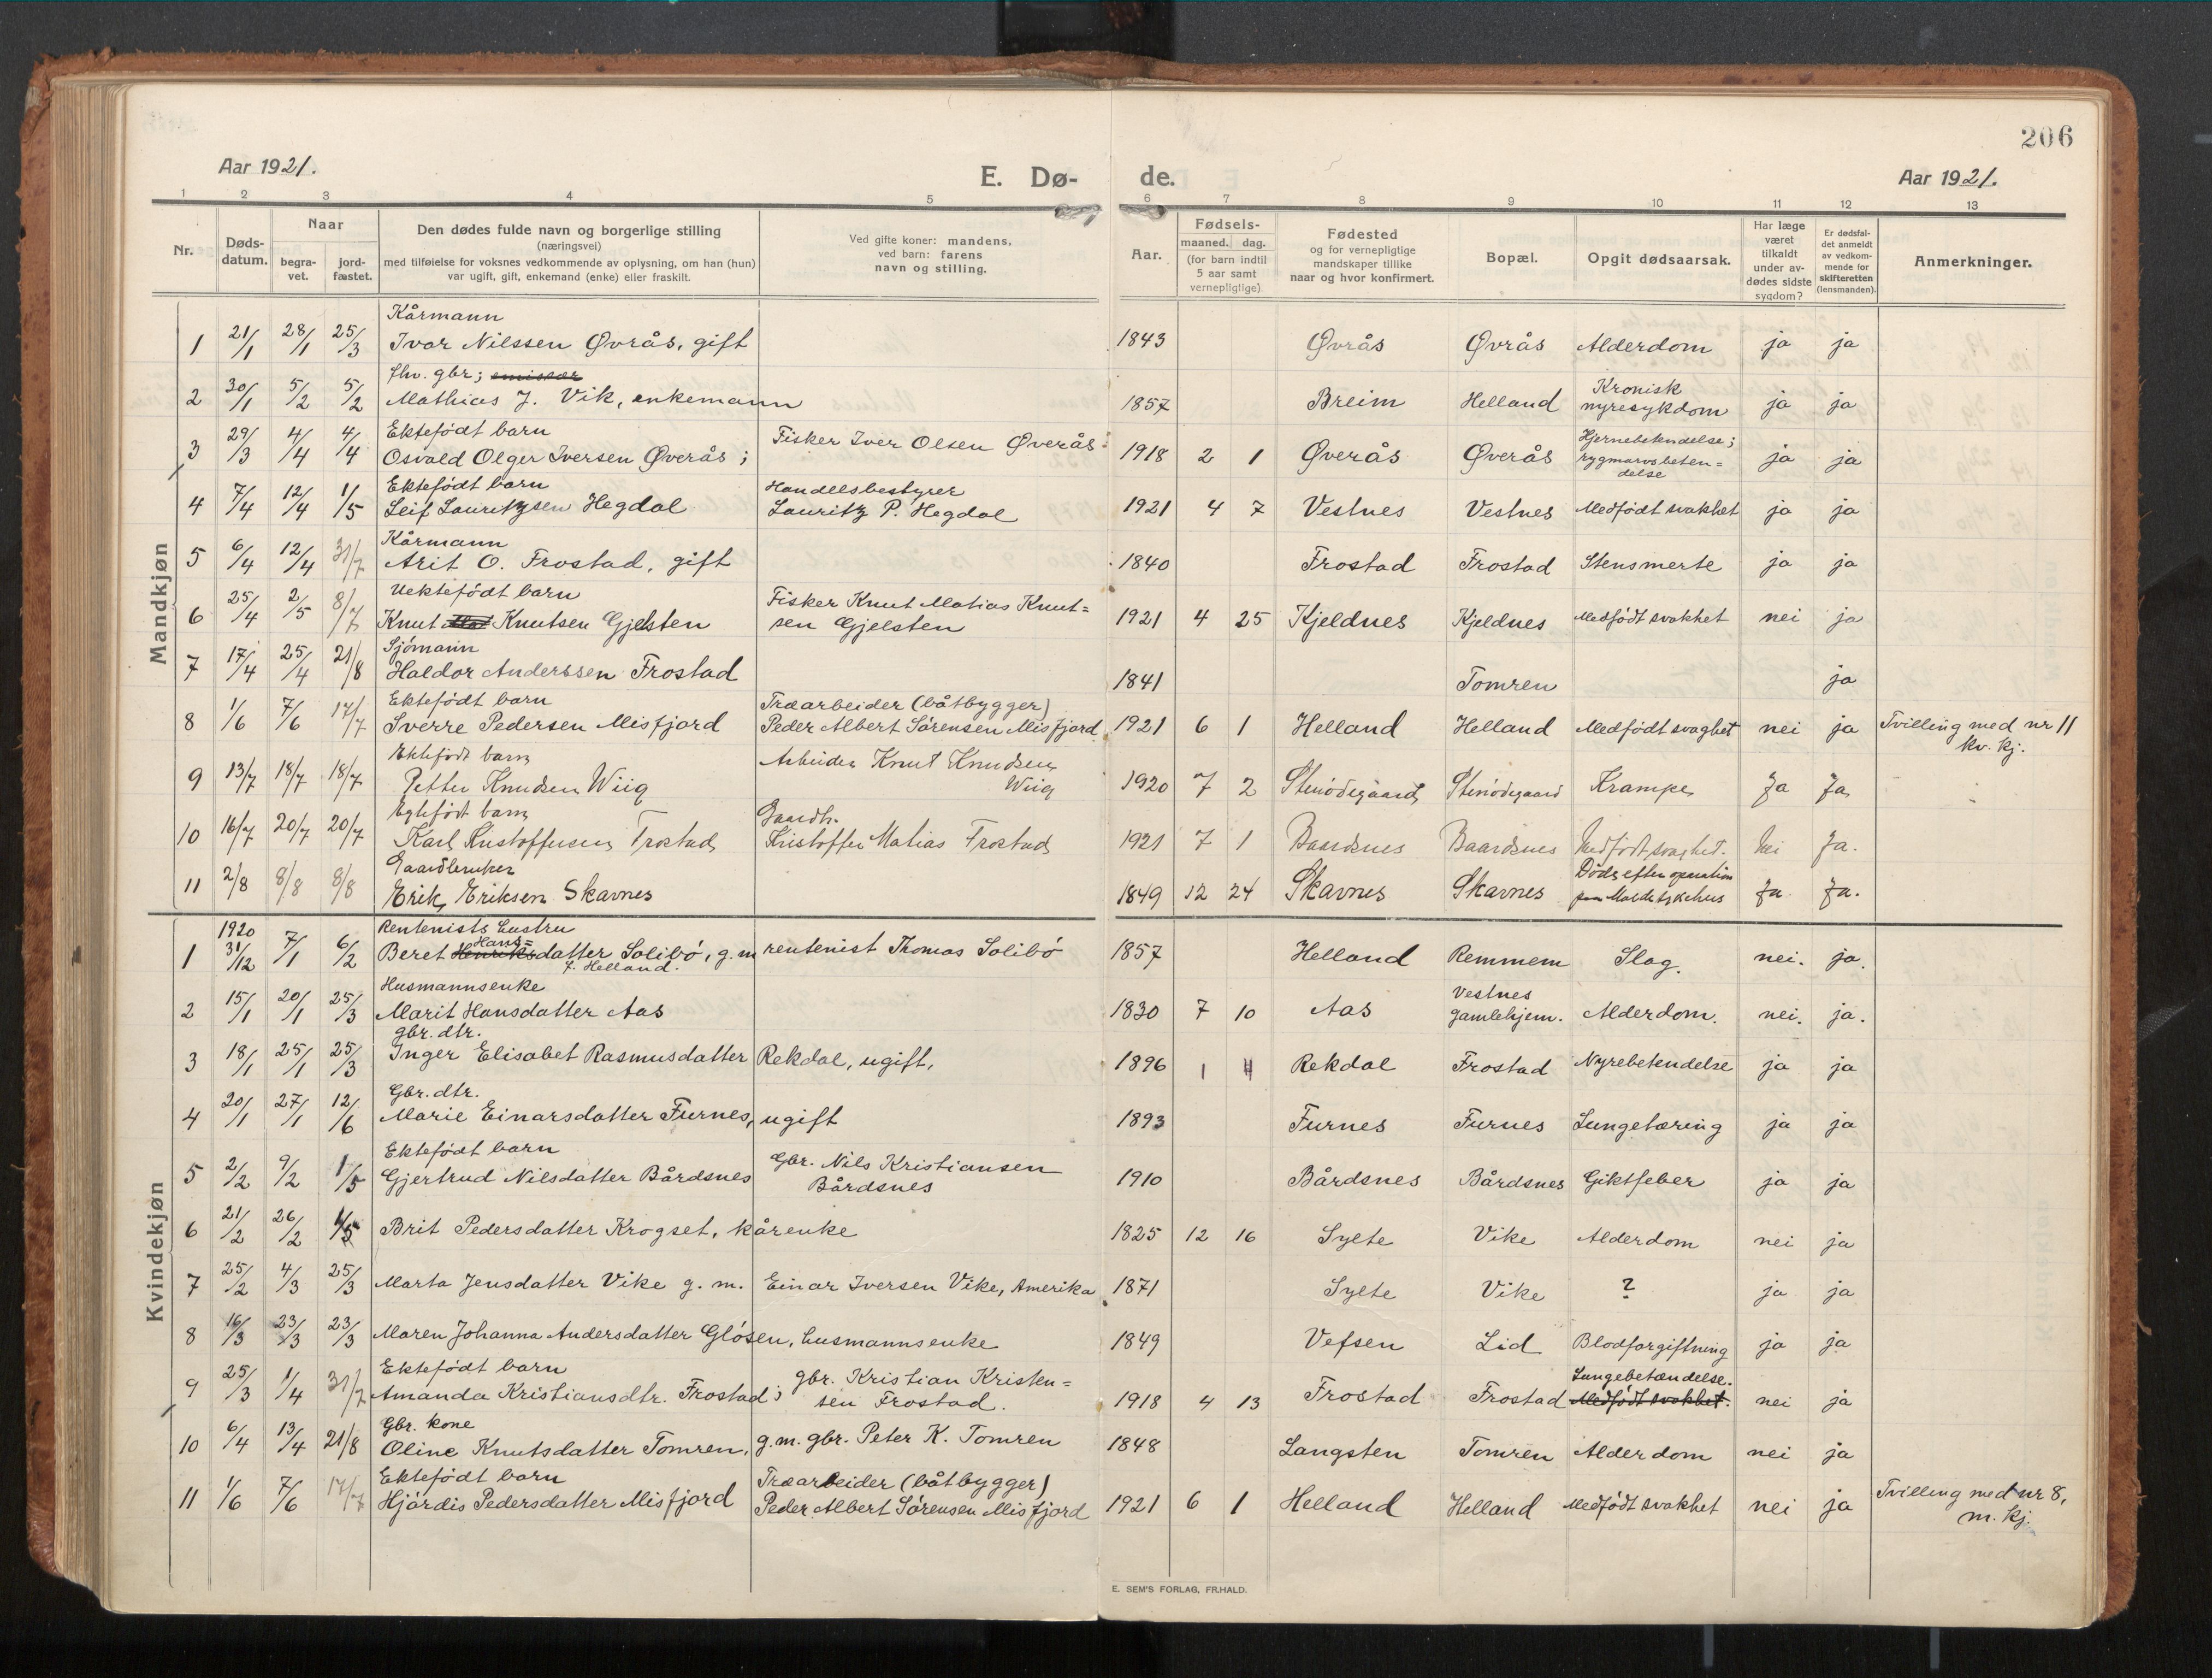 206
Aar 1921.
E. Dø-
de.
Aar 1921.
1 2 3 4 5 6 7 8 9 10 11 12 13
Nr.
Døds-
datum.
Naar
begra-
vet.
jord-
fæstet.
Den dødes fulde navn og borgerlige stilling
(næringsvei)
med tilføielse for voksnes vedkommende av oplysning, om han (hun)
var ugift, gift, enkemand (enke) eller fraskilt.
Ved gifte koner: mandens.
ved barn: farens
navn og stilling.
Aar.
Fødsels-
maaned. dag.
(for barn indtil
5 aar samt
vernepligtige)
Fødested
og for vernepligtige
mandskaper tillike
naar og hvor konfirmert.
Bopæl.
Opgit dødsaarsak.
Har læge
været
tilkaldt
under av-
dødes sidste
sygdom?
Er dødsfal-
det anmeldt
av vedkom-
mende for
skifteretten
(lensmanden).
Anmerkninger.
Mandkjøn
Kårmann
1 21/1 28/1 25/3 Ivar Nilssen Øvrås, gift 1843 Øvrås Øvrås Alderdom ja ja
fhv. gbr; emissær
2 30/1 5/2 5/2 Mathias J. Vik, enkemann 1857 Breim Helland Kronisk nyresykdom ja ja
Ektefødt barn
3 29/3 4/4 4/4 Osvald Olger Iversen Øverås; Fisker Iver Olsen Øverås 1918 2 1 Øverås Øverås Hjernebetendelse; rygmarvsbeten=delse ja ja
Ektefødt barn Handelsbestyrer
4 7/4 12/4 1/5 Leif Lauritzsen Hegdal Lauritz P. Hegdal 1921 4 7 Vestnes Vestnes Medfødt svakhet ja ja
Kårmann
5 6/4 12/4 31/7 Arit O. Frostad, gift 1840 Frostad Frostad Stensmerte ja ja
Uektefødt barn Fisker Knut Matias Knut=
6 25/4 2/5 8/7 Knut Knutsen Gjelsten sen Gjelsten 1921 4 25 Kjeldnes Kjeldnes Medfødt svakhet nei ja
Sjömann
7 17/4 25/4 21/8 Haldor Anderssen Frostad 1841 Tomren ja
Ektefødt barn Træarbeider (båtbygger)
8 1/6 7/6 17/7 Sverre Pedersen Misfjord Peder Albert Sörensen Misfjord 1921 6 1 Helland Helland Medfødt svaghet nei ja Tvilling med nr 11
kv. kj.
Ektefødt barn Arbeider Knut Knudsen
9 13/7 18/7 18/7 Petter Knudsen Wiig Wiig 1920 7 2 Stenödegaard Stenödegaard Krampe Ja Ja
Egtefødt barn Gaardb.
10 16/7 20/7 20/7 Karl Kristoffersen Frostad Kristoffer Matias Frostad 1921 7 1 Baardsnes Baardsnes Medfødt svaghet. Nei Ja.
Gaardbruker Døds efter operation
11 2/8 8/8 8/8 Erik Eriksen Skavnes 1849 12 24 Skavnes Skavnes paa Molde sykehus Ja Ja.
Kvindekjøn
1920 Rentenists hustru
Hans=
1 31/12 7/1 6/2 Beret Henriksdatter Solibö, g. m rentenist Thomas Solibö 1857 Helland Remmem Slag. nei. ja.
f. Helland.
Husmannsenke Vestnes
2 15/1 20/1 25/3 Marit Hansdatter Aas 1830 7 10 Aas gamlehjem. Alderdom. nei. ja.
gbr. dtr.
3 18/1 25/1 25/3 Inger Elisabet Rasmusdatter Rekdal, ugift, 1896 1 4 Rekdal Frostad Nyrebetendelse ja ja
Gbr. dtr.
4 20/1 27/1 12/6 Marie Einarsdatter Furnes, ugift 1893 Furnes Furnes Lungetæring ja ja
Ektefødt barn Gbr. Nils Kristiansen
5 2/2 9/2 1/5 Gjertrud Nilsdatter Bårdsnes Bårdsnes 1910 Bårdsnes Bårdsnes Giktfeber ja ja
6 21/2 26/2 1/5 Brit Pedersdatter Krogset, kårenke 1825 12 16 Sylte Vike Alderdom nei ja
7 25/2 4/3 25/3 Marta Jensdatter Vike g. m. Einar Iversen Vike, Amerika 1871 Sylte Vike ? ja ja
8 16/3 23/3 23/3 Maren Johanna Andersdatter Glösen, husmannsenke 1849 Vefsen Lid Blodforgiftning ja ja
Ektefødt barn gbr. Kristian Kristen= Lungebetændelse.
9 25/3 1/4 31/7 Amanda Kristiansdtr. Frostad; sen Frostad. 1918 4 13 Frostad Frostad Medfødt svakhet. nei ja
Gbr. kone
10 6/4 13/4 21/8 Oline Knutsdatter Tomren, g.m. gbr. Peter K. Tomren 1848 Langsten Tomren Alderdom nei ja
Ektefødt barn Træarbeider (båtbygger)
11 1/6 7/6 17/7 Hjördis Pedersdatter Misfjord Peder Albert Sörensen Misfjord 1921 6 1 Helland Helland Medfødt svakhet nei ja Tvilling med nr 8,
m. kj.
E. SEM'S FORLAG, FR.HALD.